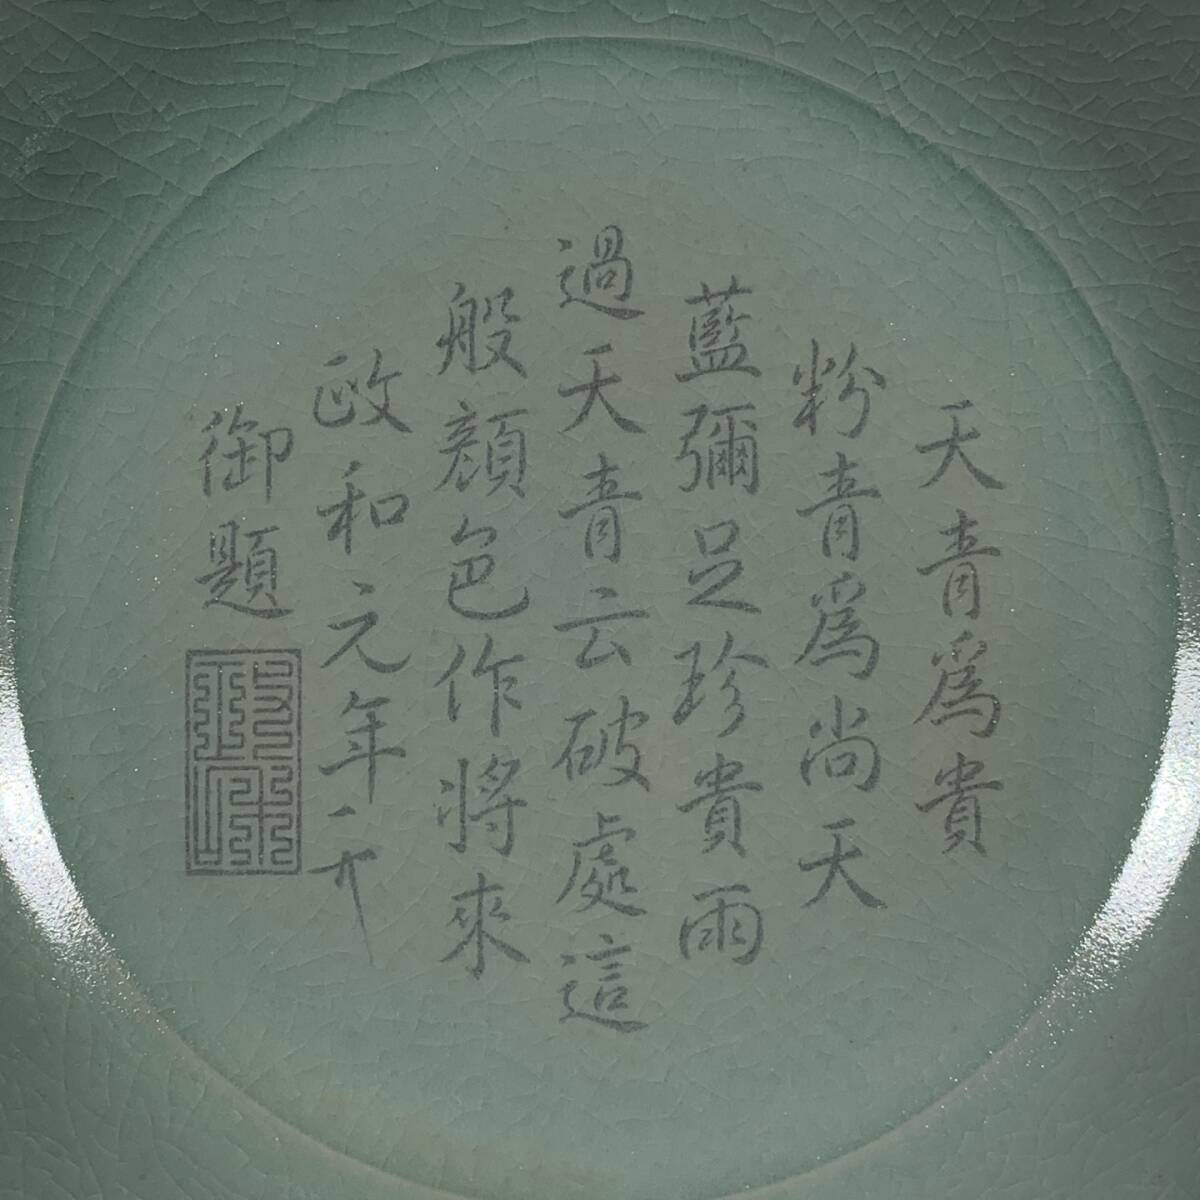 天青爲貴
粉青爲尚天
藍彌足珍貴雨
過天青云破處這
般顔色作將來
政和元年
御題